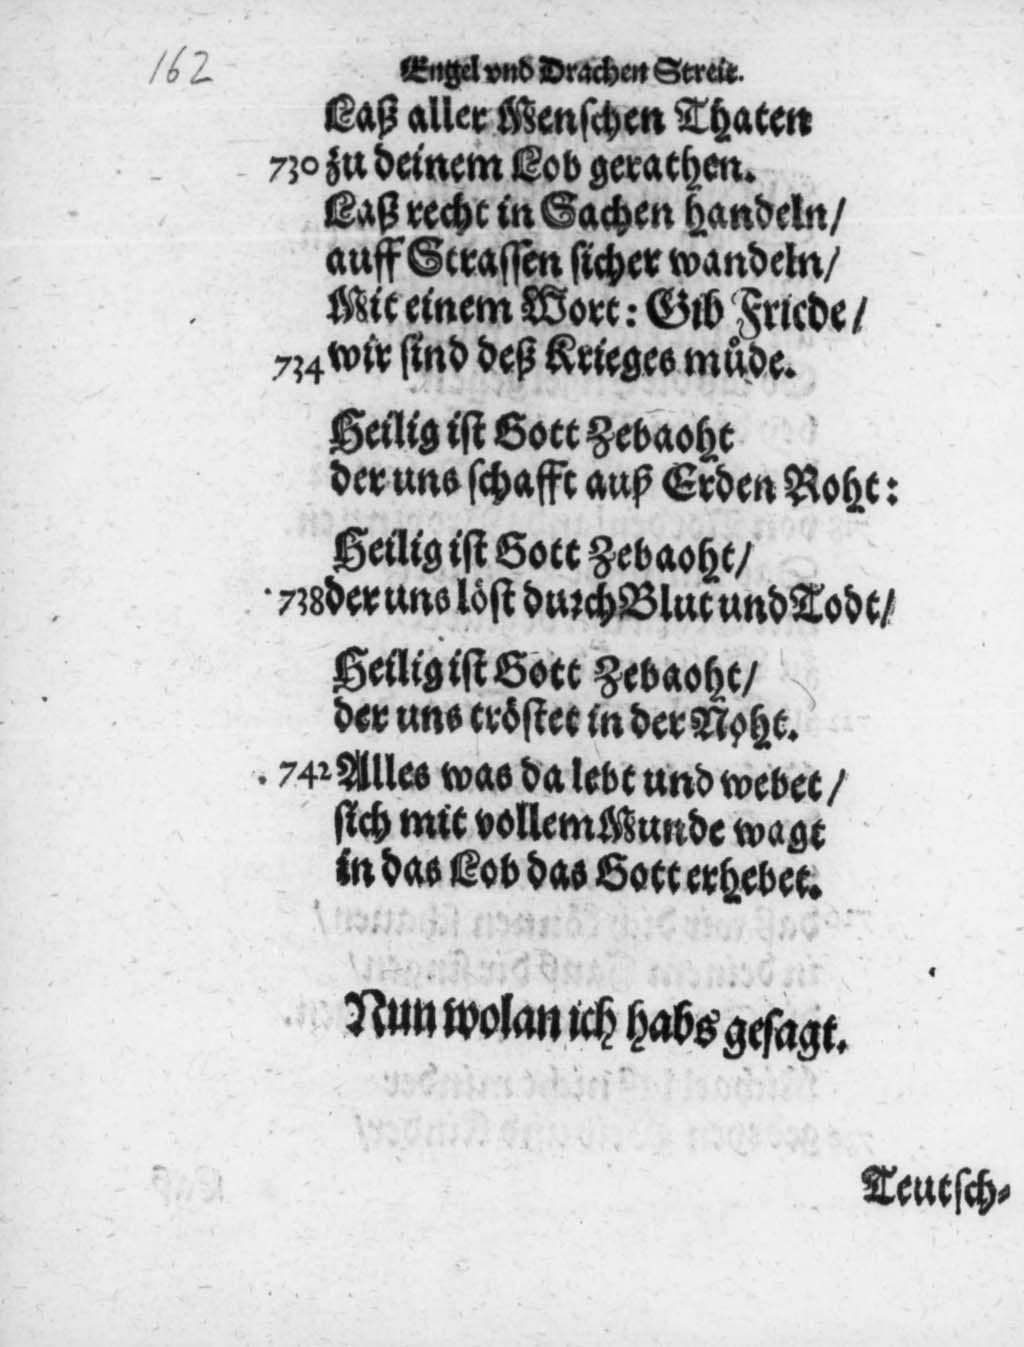 162
Engel vnd Drachen Streit.
Laß aller Menschen Thaten
730 zu deinem Lob gerathen.
Laß recht in Sachen handeln/
auff Strassen sicher wandeln/
Mit einem Wort: Gib Friede/
734 wir sind deß Krieges můde.
Heilig ist Gott Zebaoht
der uns schafft auß Erden Roht:
Heilig ist Gott Zebaoht/
738 der uns löst durch Blut und Todt/
Heilig ist Gott Zebaoht/
der uns tröstet in der Noht.
742 Alles was da lebt und webet/
sich mit vollem Munde wagt
in das Lob das Gott erhebet.
Nun wolan ich habs gesagt.
Teutsch-